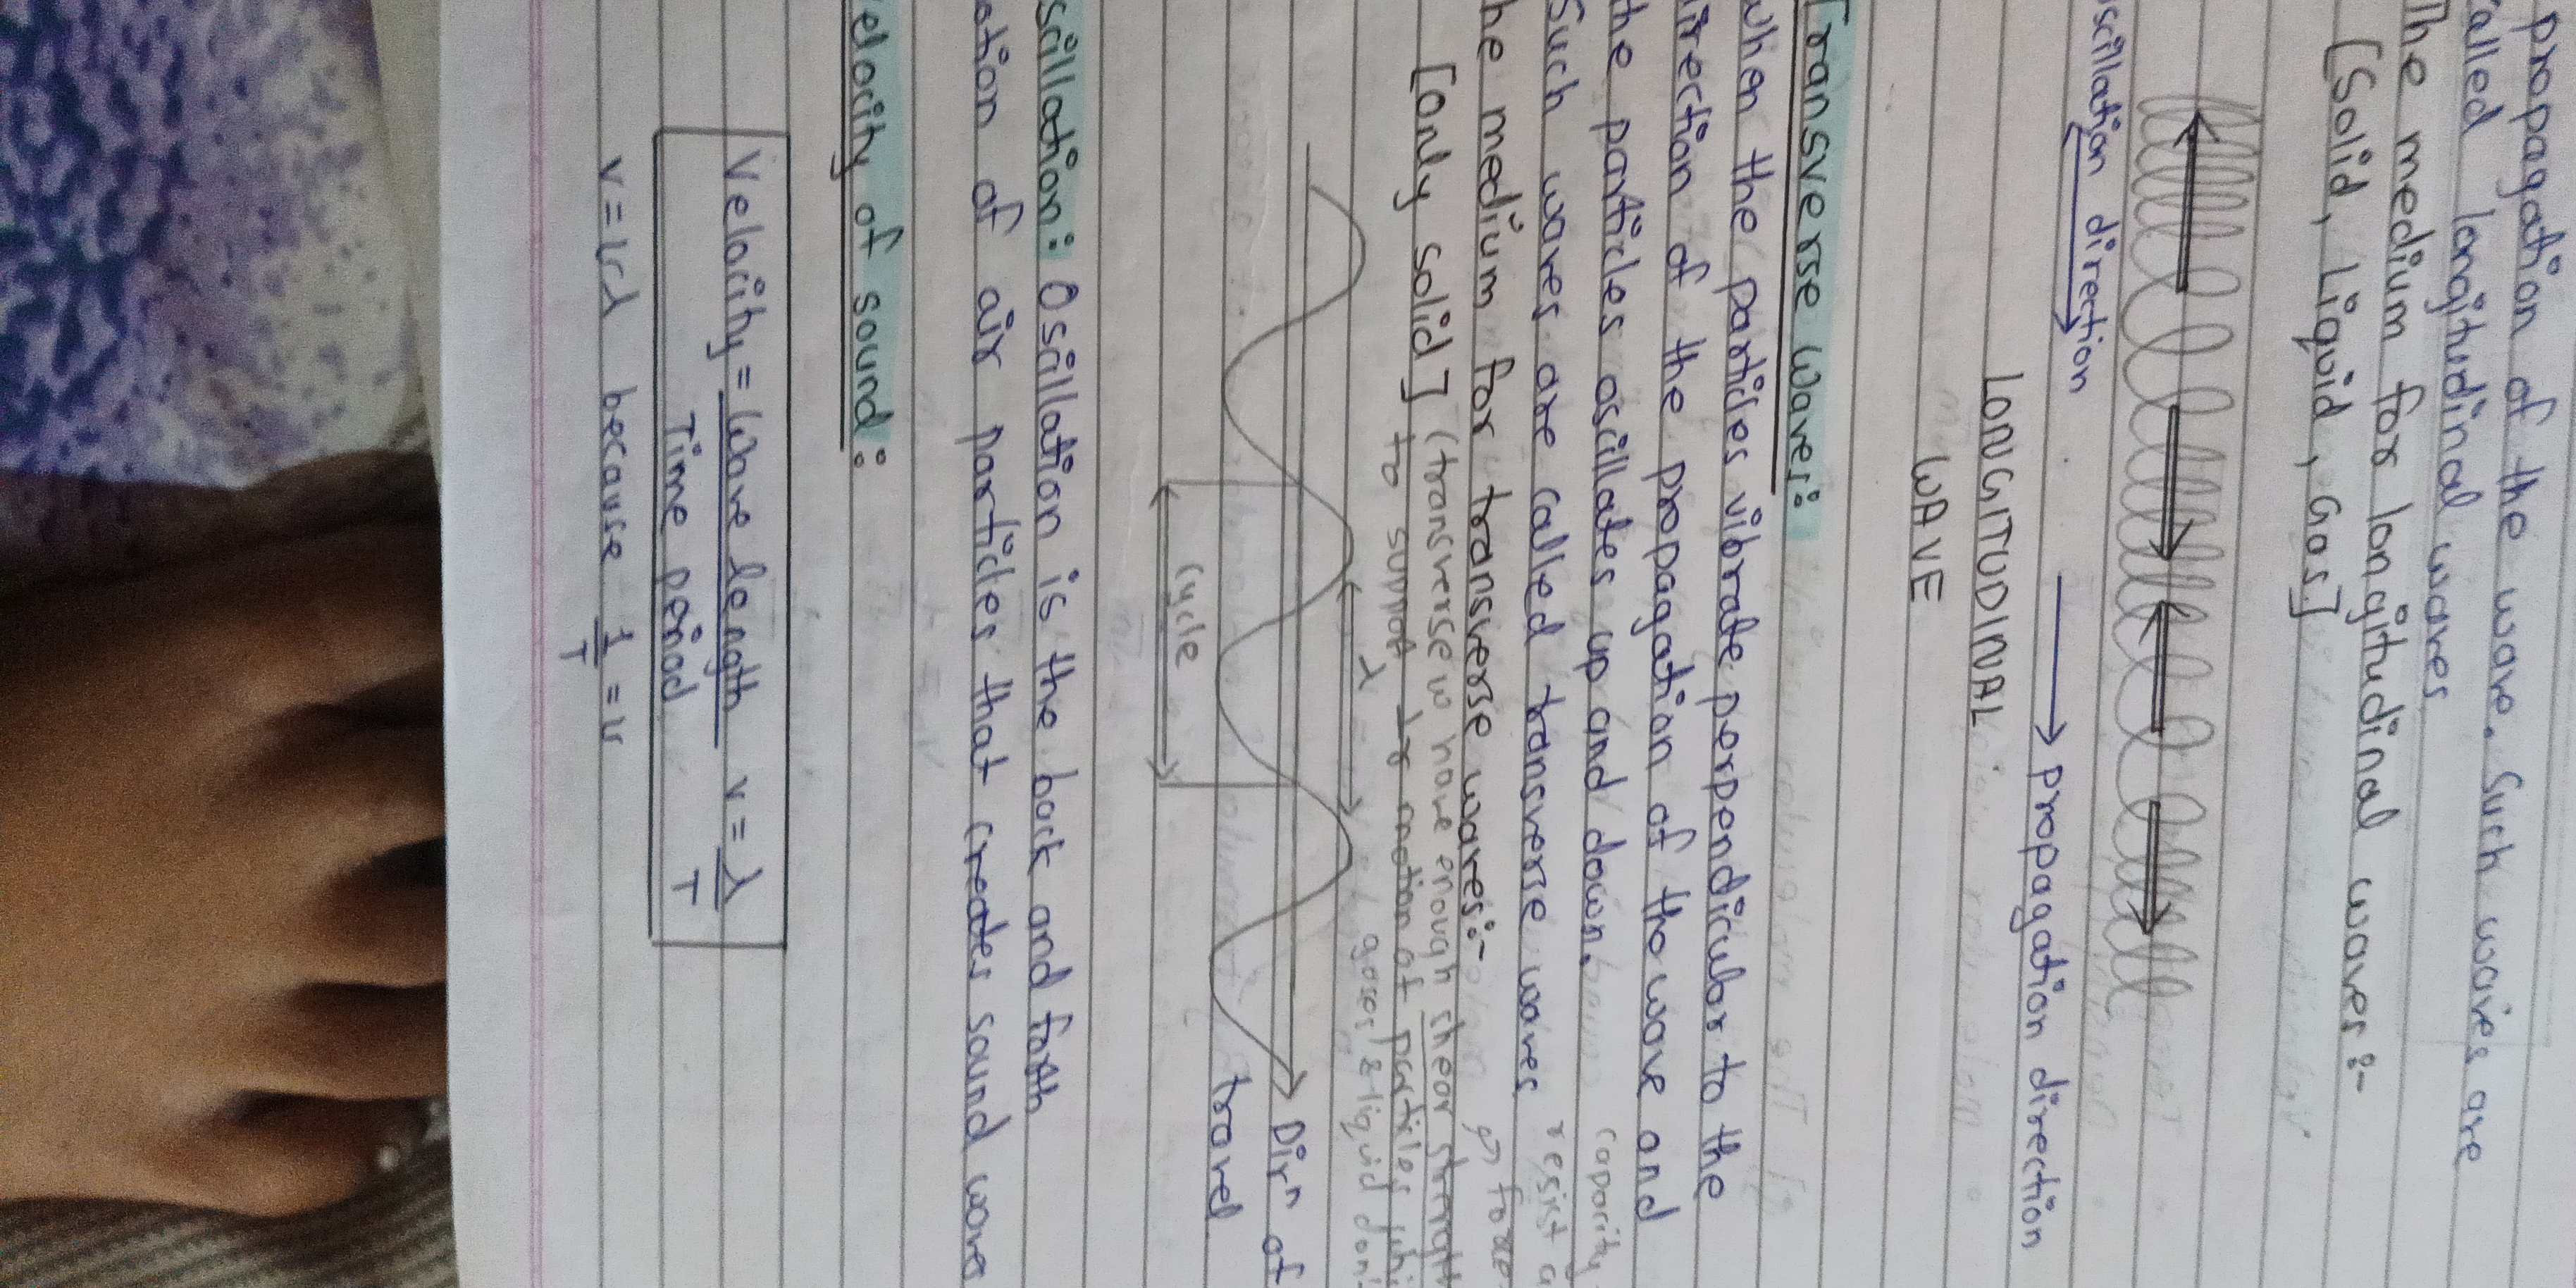 propagation of the wave. Such waves are
alled longitudinal waves
The medium for longitudinal waves:-
[Solid, Liquid, Gas]
scillation direction
→ propagation direction
LONGITUDINAL
WAVE
Transverse waves:
when the particles vibrate perpendicular to the
irection of the propagation of the wave and
the particles oscillates up and down.
capacity
Such waves are called transverse waves
resist a
he medium for transverse waves:-
→ force
[only solid] (transverse w have enough shear strength
to support motion of particles whi
gases & liquid don'
λ
cycle
Dirⁿ of
travel
scillation: Oscillation is the back and forth
ation of air particles that creates sound wave
elocity of sound:
Velocity = Wave length v = λ
Time period T
v = νλ because 1/T = ν